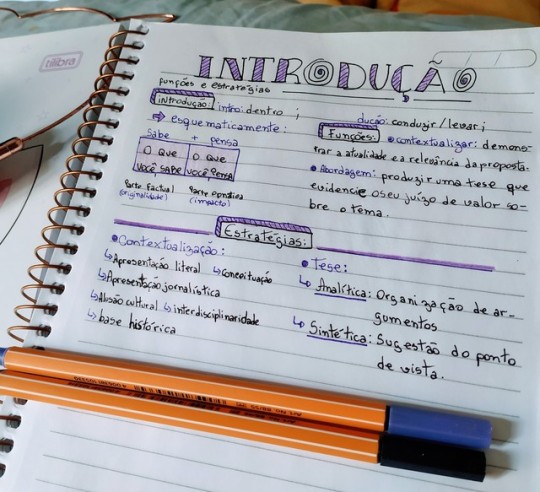 tilibra
INTRODUÇÃO
funções e estratégias
introdução: intro: dentro ; dução: conduzir/levar;
⇒ esquematicamente:
sabe + pensa
O QUE VOCÊ SABE
O QUE VOCÊ PENSA
Parte Factual (originalidade)
Parte Opinativa (impacto)
Funções: • contextualizar: demons-
trar a atualidade e a relevância da proposta.
• Abordagem: produzir uma tese que
evidencie o seu juízo de valor so-
bre o tema.
Estratégias:
• Contextualização:
↳ Apresentação literal ↳ conceituação
↳ Apresentação jornalística
↳ Alusão cultural ↳ interdisciplinaridade
↳ base histórica
• Tese:
↳ Analítica: Organização de ar-
gumentos
↳ Sintética: Sugestão do ponto
de vista.